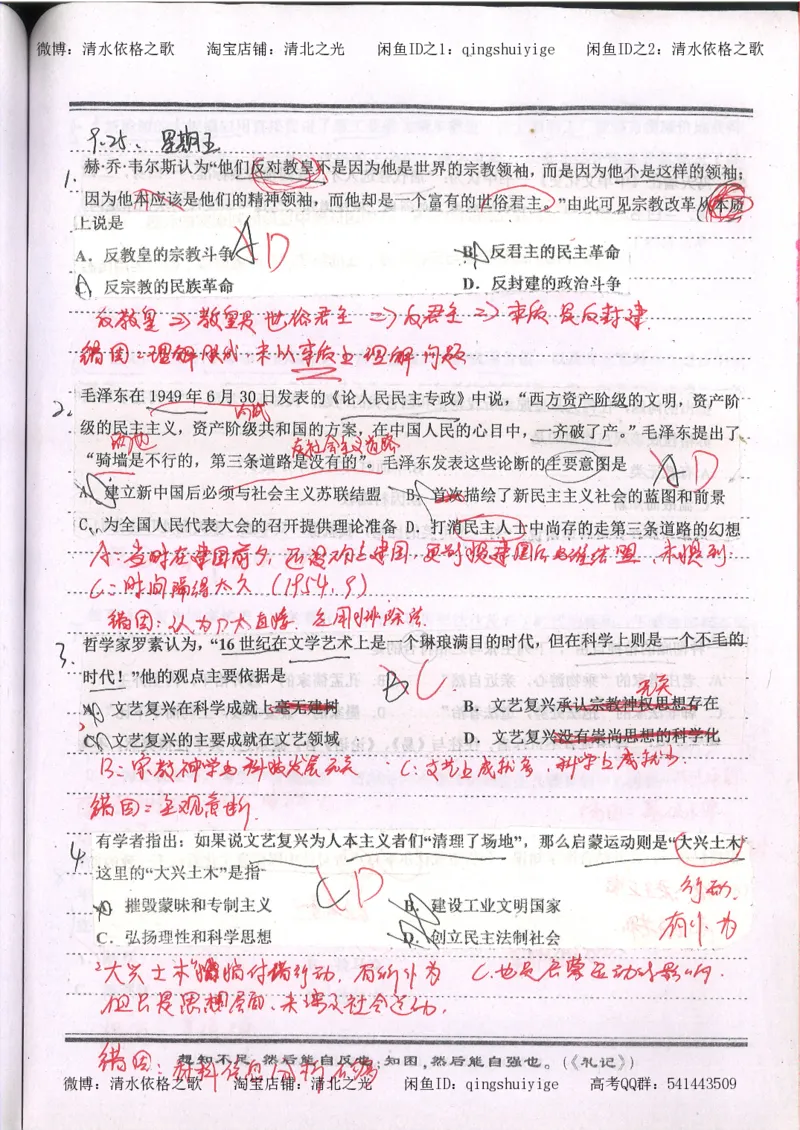 微博：清水依格之歌 淘宝店铺：清北之光 闲鱼ID之1：qingshuiyige 闲鱼ID之2：清水依格之歌
9.25. 星期五
1. 赫·乔·韦尔斯认为“他们反对教皇不是因为他是世界的宗教领袖，而是因为他不是这样的领袖；
因为他本应该是他们的精神领袖，而他却是一个富有的世俗君主。”由此可见宗教改革从本质
上说是
A D
A．反教皇的宗教斗争 B．反君主的民主革命
C．反宗教的民族革命 D．反封建的政治斗争
反教皇⇒教皇是世俗君主⇒反君主⇒本质是反封建
错因：理解肤浅，未从本质上理解问题
2. 毛泽东在 1949 年 6 月 30 日发表的《论人民民主专政》中说，“西方资产阶级的文明，资产阶
级的民主主义，资产阶级共和国的方案，在中国人民的心目中，一齐破了产。”毛泽东提出了
反社会主义道路
“骑墙是不行的，第三条道路是没有的”。毛泽东发表这些论断的主要意图是
A D
A．建立新中国后必须与社会主义苏联结盟 B．首次描绘了新民主主义社会的蓝图和前景
C．为全国人民代表大会的召开提供理论准备 D．打消民主人士中尚存的走第三条道路的幻想
A：当时在建国前夕，还没有建国，
C：时间隔得太久（1954.9）
错因：认为D太直接，应用排除法
3. 哲学家罗素认为，“16 世纪在文学艺术上是一个琳琅满目的时代，但在科学上则是一个不毛的
时代！”他的观点主要依据是
B C
无关
A．文艺复兴在科学成就上毫无建树 B．文艺复兴承认宗教神权思想存在
C．文艺复兴的主要成就在文艺领域 D．文艺复兴没有崇尚思想的科学化
B：宗教神学与科技发展无关 C：文艺上成就多，科学上成就少
错因：主观臆断
4. 有学者指出：如果说文艺复兴为人本主义者们“清理了场地”，那么启蒙运动则是“大兴土木”
这里的“大兴土木”是指
C D
行动，
有作为
A．摧毁蒙昧和专制主义 B．建设工业文明国家
C．弘扬理性和科学思想 D．创立民主法制社会
“大兴土木”指付诸行动，有所作为 C.也是启蒙运动的影响.
但只是思想层面，未涉及社会运动.
想知不足，然后能自反也；知困，然后能自强也。（《礼记》）
错因：材料信息分析不够
微博：清水依格之歌 淘宝店铺：清北之光 闲鱼ID：qingshuiyige 高考QQ群：541443509